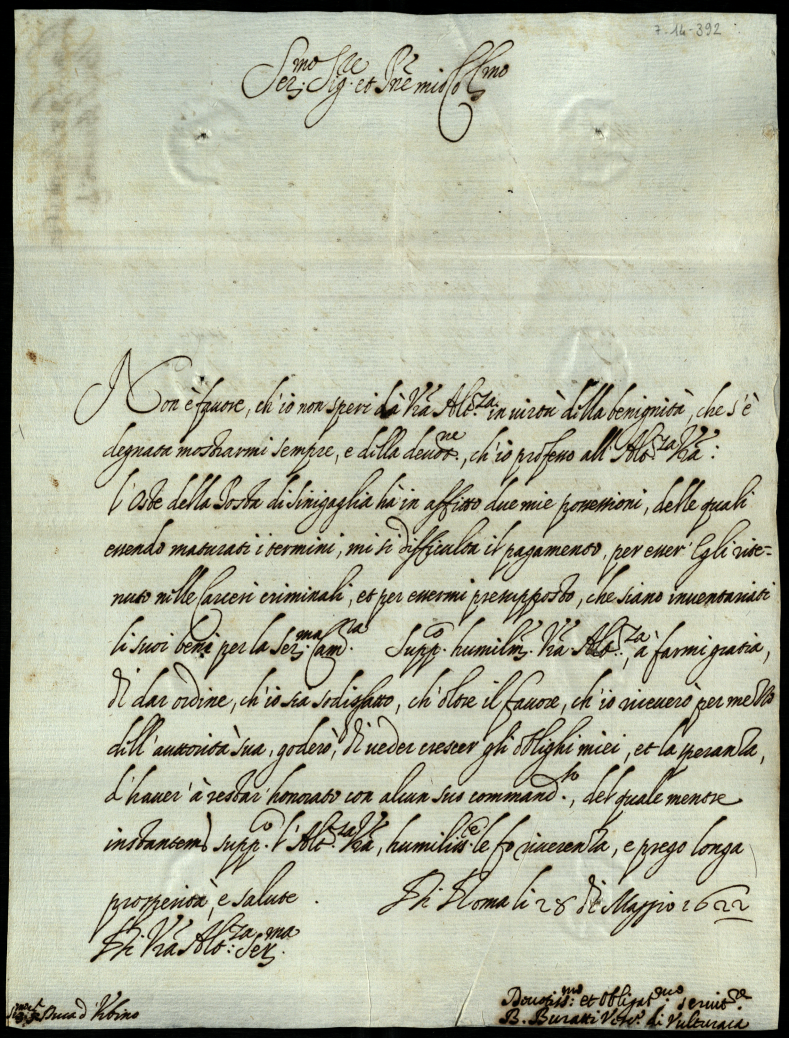 7-14-392
Ser:mo Sig:re et Pne mio Col:mo
Non è fauore, ch'io non speri dà Vra Alt:za in virtù della benignità, che s'è
degnata mostrarmi sempre, e della deuot:ne, ch'io professo all'Alt:za Vra:
l'Oste della Posta di Sinigaglia hà in affitto due mie possessioni, delle quali
essendo maturati i termini, mi si difficulta il pagamento, per esser Egli rite-
nuto nelle Carceri criminali, et per essermi presupposto, che siano inuentariati
li suoi beni per la Ser:ma Cam:ra Supp:co humilm: Vra Alt:za, à farmi gratia,
di dar ordine, ch'io sia sodisfatto, ch'oltre il fauore, ch'io riceuerò per mezzo
dell'auttorità sua, goderò, di ueder crescer gli oblighi miei, et la speranza,
d'hauer' à restar' honorato con alcun suo command:to, del quale mentre
instantem: supp:co l'Alt:za Vra, humiliss:te le fo riuerenza, e prego longa
prosperità, e salute. Di Roma li 28 di Maggio 1622
Di Vra Alt:za Ser:ma
Duca d'Vrbino
Deuotiss:mo et Obligat:mo seruit:re
B. Buratti Vesc: di Vulturara